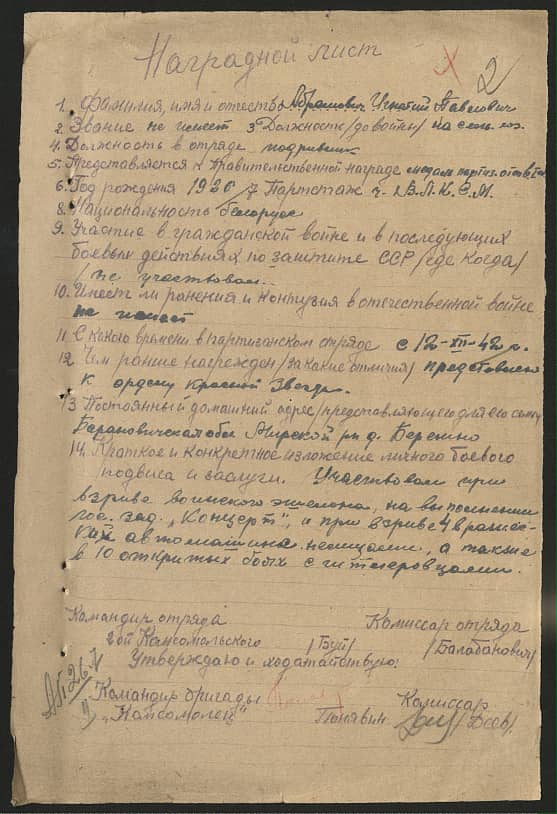 Наградной лист
2
1. Фамилия, имя и отество Абрамович Игнатий Павлович
2. Звание не имеет 3 Должность /до войны/ на сель. хоз.
4. Должность в отряде подрывник
5. Представляется к правительственной награде медаль партиз. отеч.
6. Год рождения 1920 7 Партстаж ч. В.Л.К.С.М.
8. Национальность белорус
9. Участие в гражданской войне и в последующих
боевых действиях по защите ССР /где когда/
/не участвовал.
10. Имеет ли ранения и контузия в отечественной войне
не имеет
11. С какого времени в партизанском отряде с 12-XII-42 г.
12. Чем ранше награжден /за какие отличия/ представлен
к ордену Красной Звезды.
13 Постоянный домашний адрес /представляющего для его семьи
Барановичская обл Мирской рн д. Березно
14. Краткое и конкретное изложение личного боевого
подвига и заслуги. Участвовал при
взриве воинского эшелона, на выполнении
гос. зад. „Концерт", и при взриве 4 вражес-
ких автомашин а также
в 10 открытых боях с гитлеровцами.
Командир отряда Комиссар отряда
2ой Комсомольского /Буй/ /Балабанович/
Утверждаю и ходатайствую:
Командир бригады Комиссар
„Комсомолец"